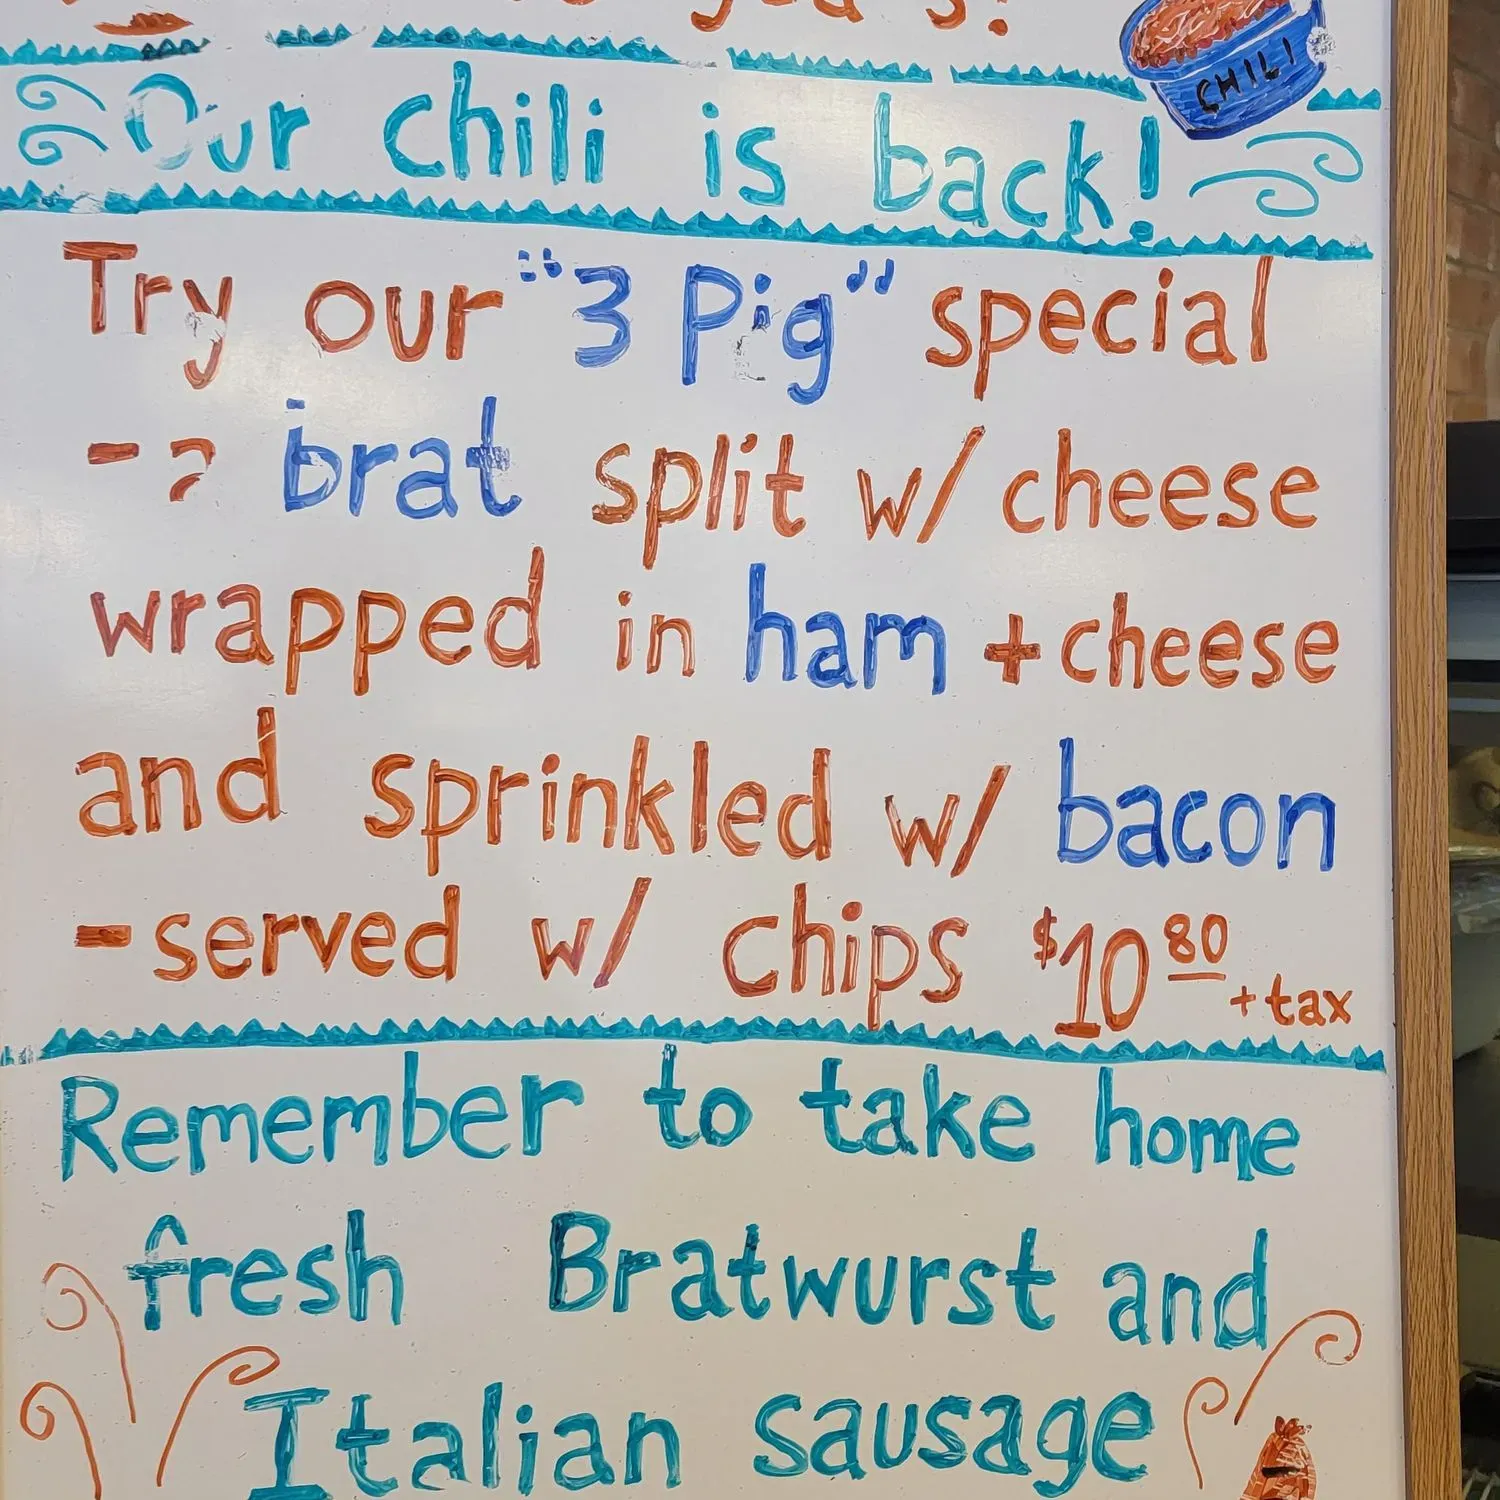 CHILI
Our chili is back!
Try our "3 Pig" special
- a brat split w/ cheese
wrapped in ham + cheese
and sprinkled w/ bacon
- served w/ chips $10 80 + tax
Remember to take home
fresh Bratwurst and
Italian sausage